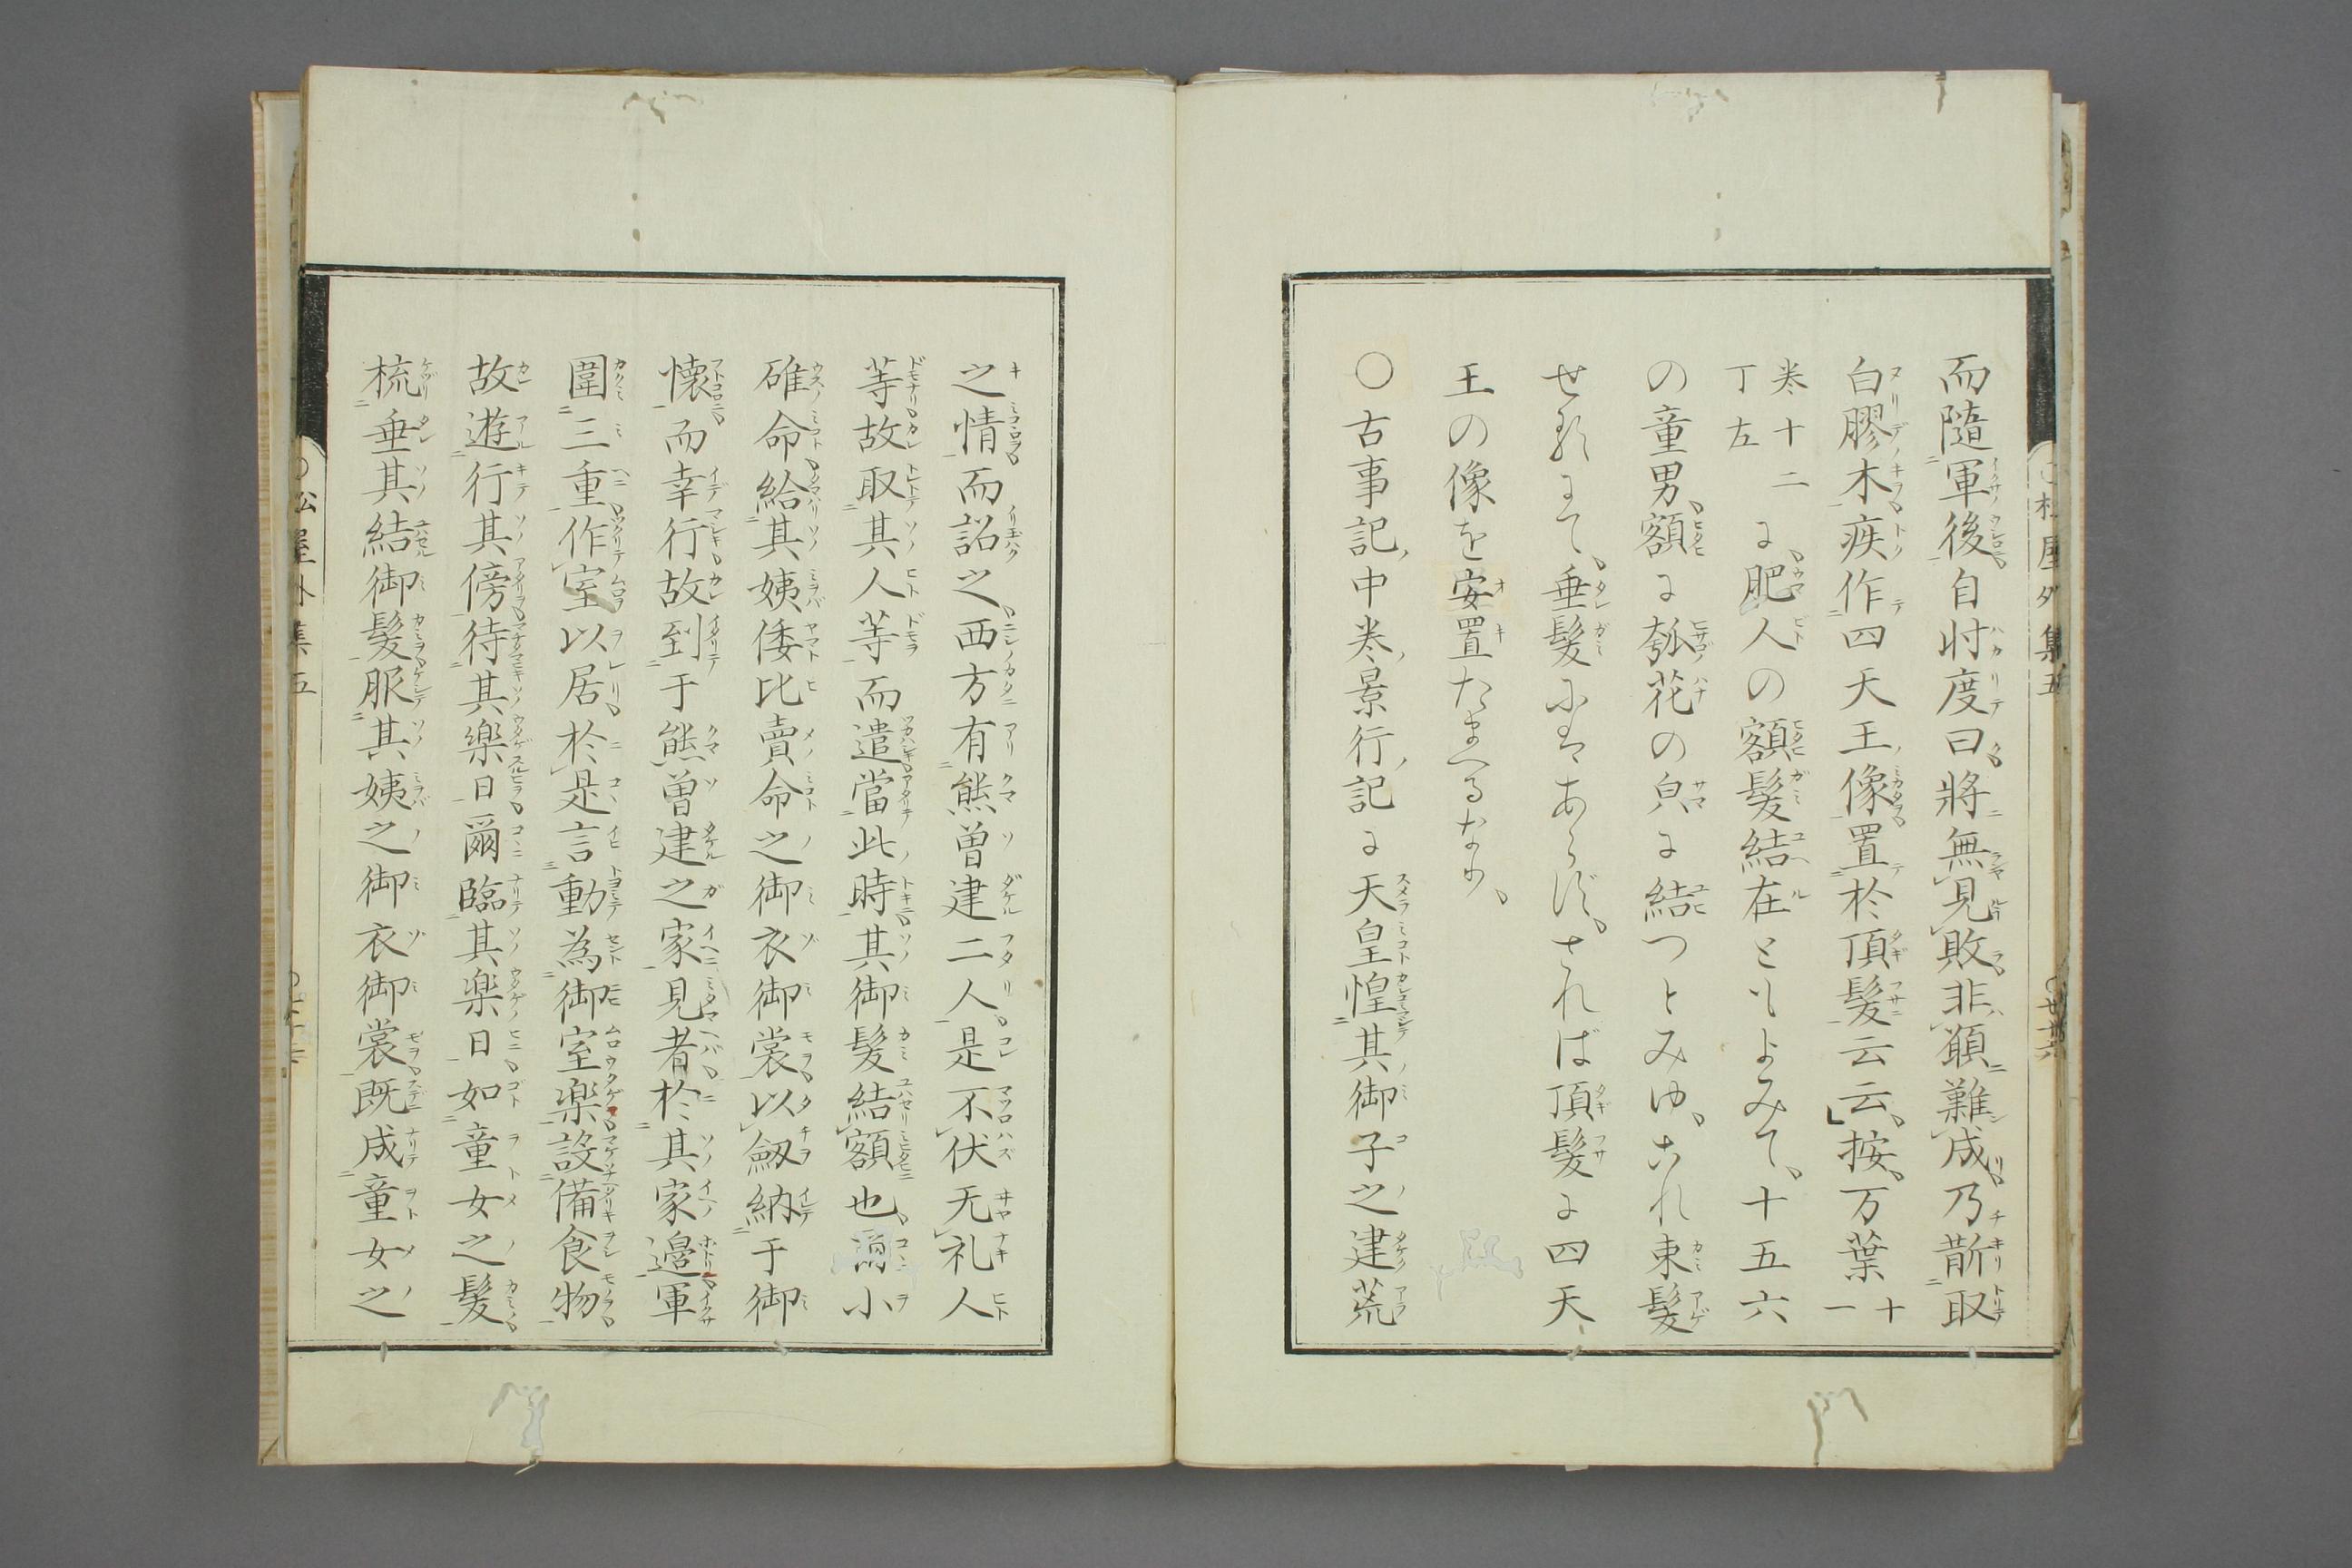 而隨軍後自忖度曰將無見敗非願難成乃斮取
白膠木疾作四天王像置於頂髮云云按万葉十一
巻十二丁左に肥人の額髮結在ともよみて十五六
の童男額に瓠花の㒵に結つとみゆこれ束髮
せるにて垂髮にはあらじされば頂髮に四天
王の像を安置たまへるなり
○古事記中巻景行記に天皇惶其御子之建荒
之情而詔之西方有熊曽建二人是不伏无礼人
等故取其人等而遣當此時其御髮結額也爾小
碓命給其姨倭比賣命之御衣御裳以劔納于御
懐而幸行故到于熊曽建之家見者於其家邊軍
圍三重作室以居於是言動為御室楽設備食物
故遊行其傍待其楽日爾臨其楽日如童女之髮
梳垂其結御髮服其姨之御衣御裳既成童女之
松屋外集五